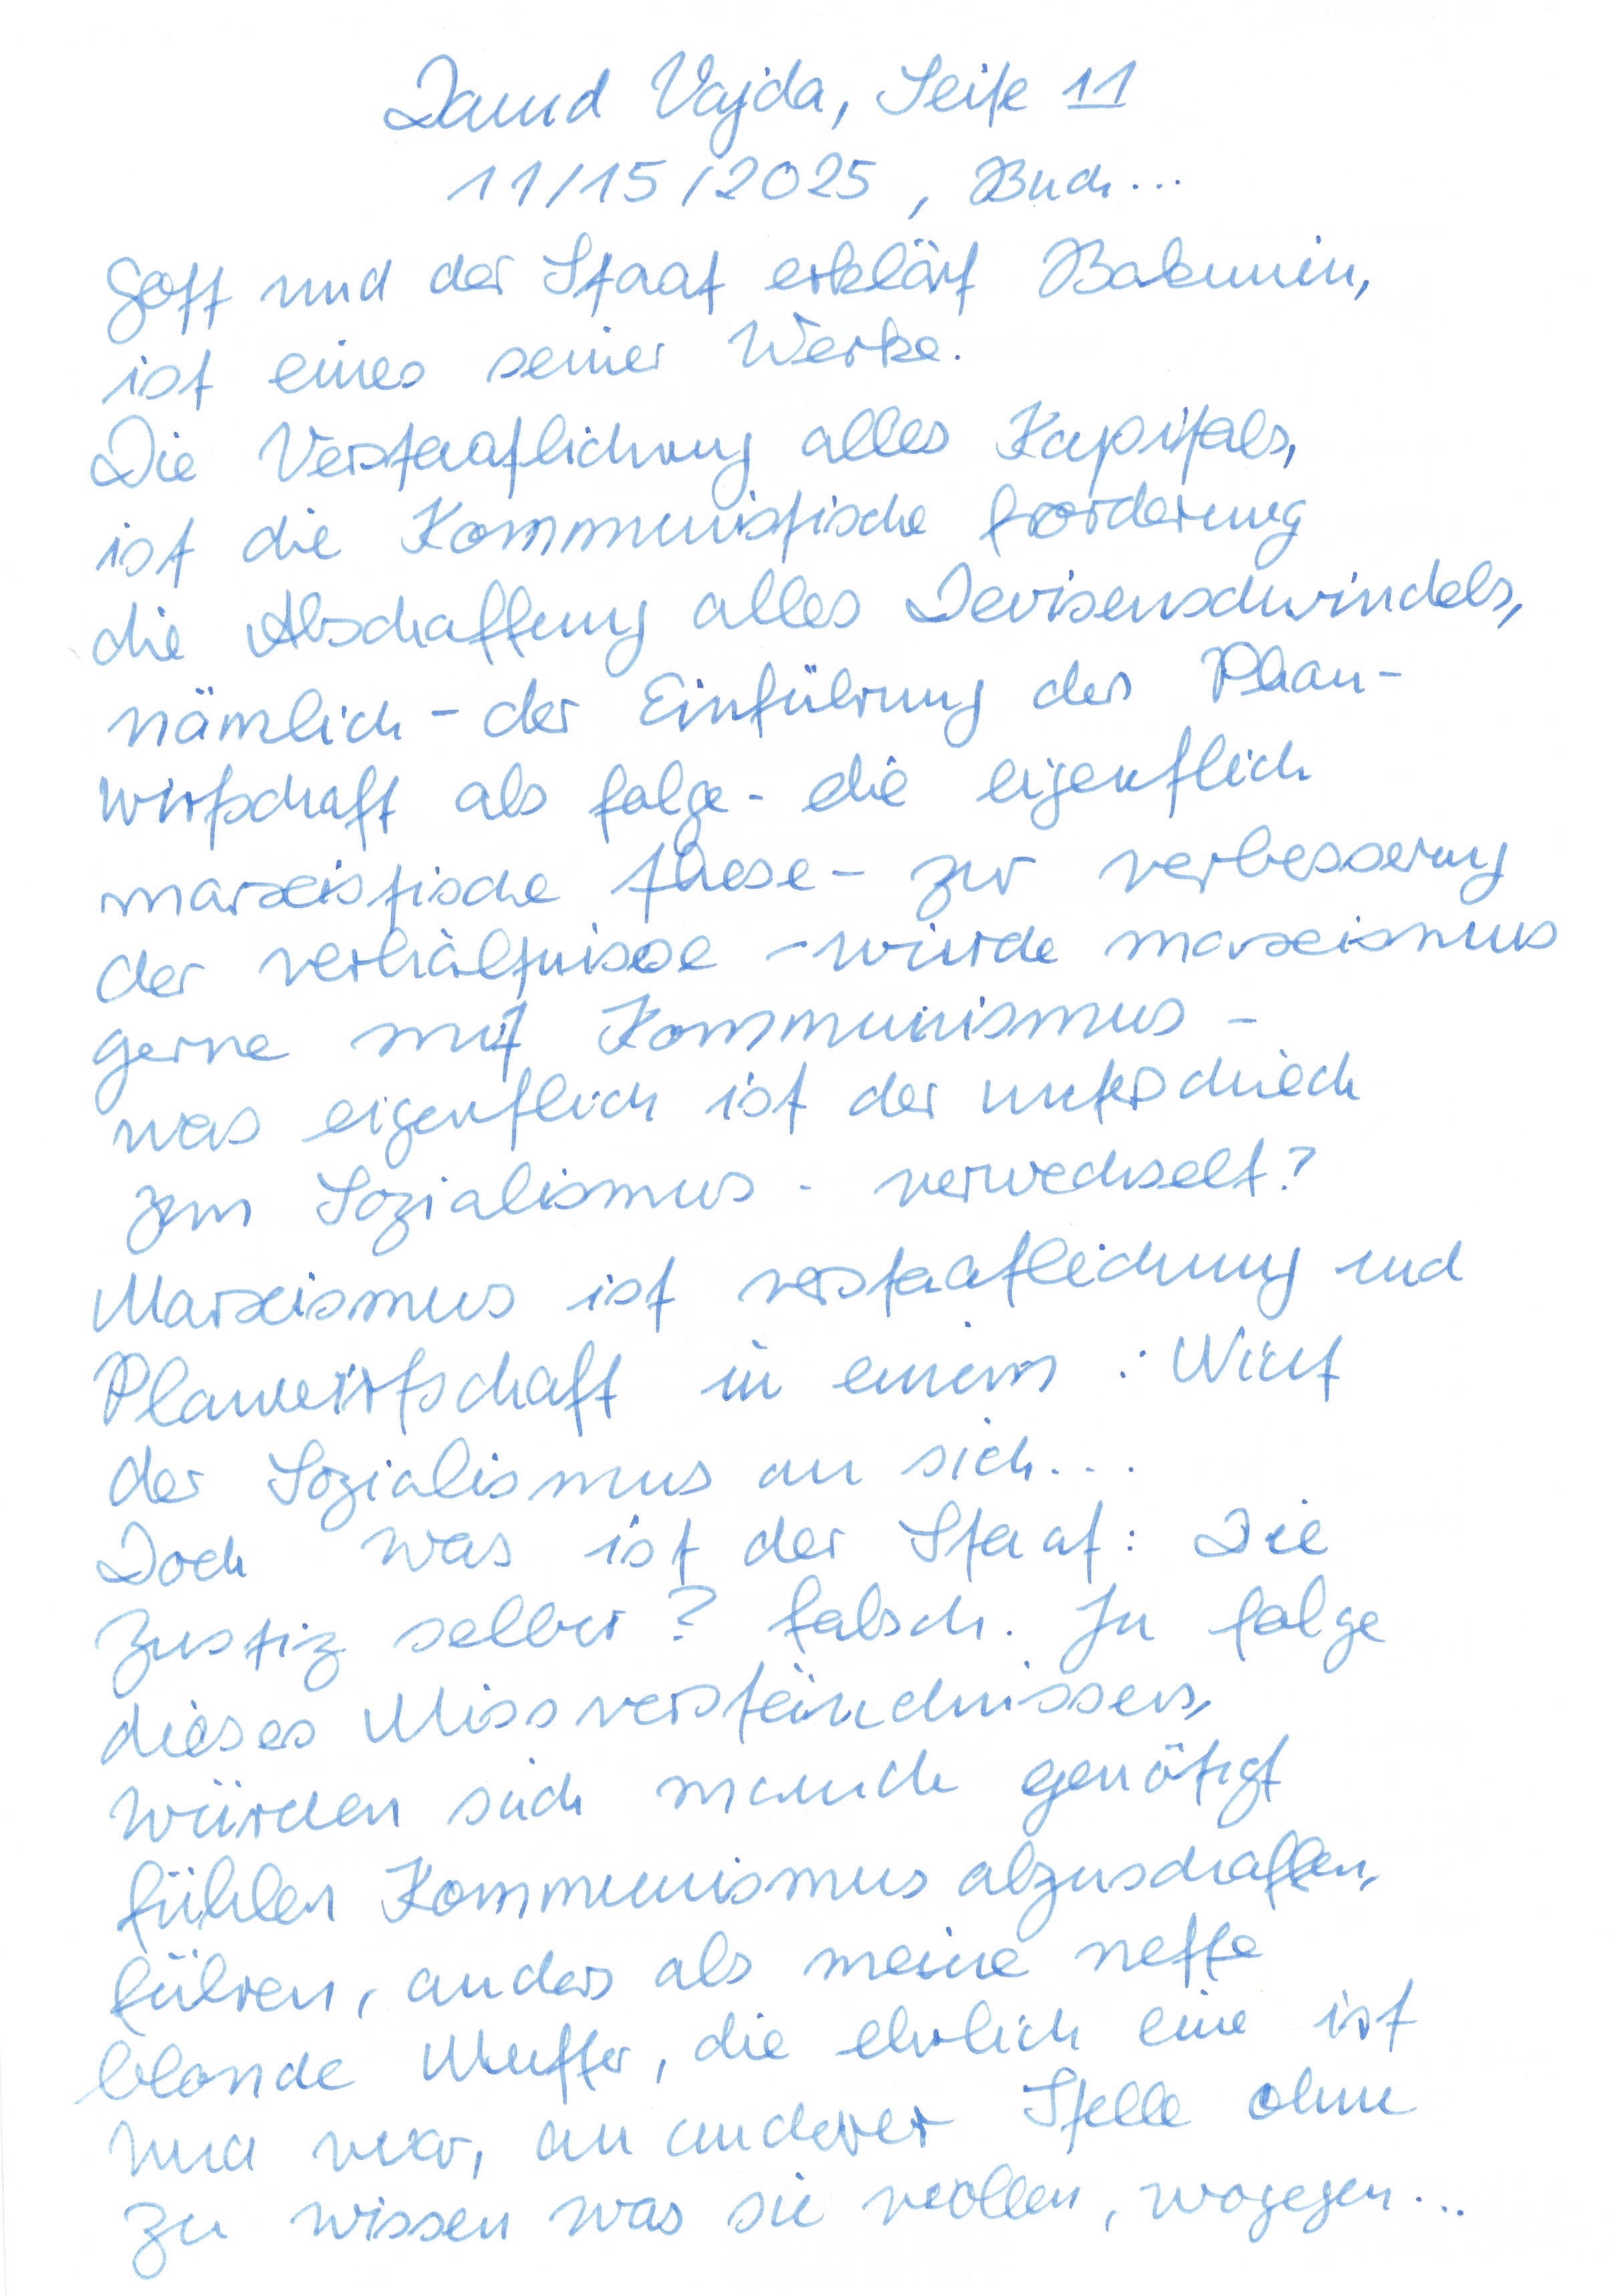 David Vajda, Seite 11
11/15/2025, Buch...
Gott und der Staat erklärt Bakunin,
ist eines seiner Werke.
Die Verstaatlichung alles Kapitals,
ist die Kommunistische forderung
die Abschaffung alles Devisenschwindels,
nämlich - der Einführung der Plan-
wirtschaft als folge - die eigentlich
marxistische these - zur verbesserung
der verhältnisse - würde marxismus
gerne mit Kommunismus -
was eigentlich ist der unterschiech
zum Sozialismus - verwechselt?
Marxismus ist verstaatlichung und
Planwirtschaft in einem : Wirt
der Sozialismus an sich...
Doch was ist der Staat: Die
Justiz selber? falsch. In folge
dieses Missverständnissen,
würden sich manch genötigt
fühlen Kommunismus abzuschaffen,
führen, anders als meine nette
blonde Mutter, die ehrlich eine ist
und war, an anderer Stelle ohne
zu wissen was sie wollen, wogegen...